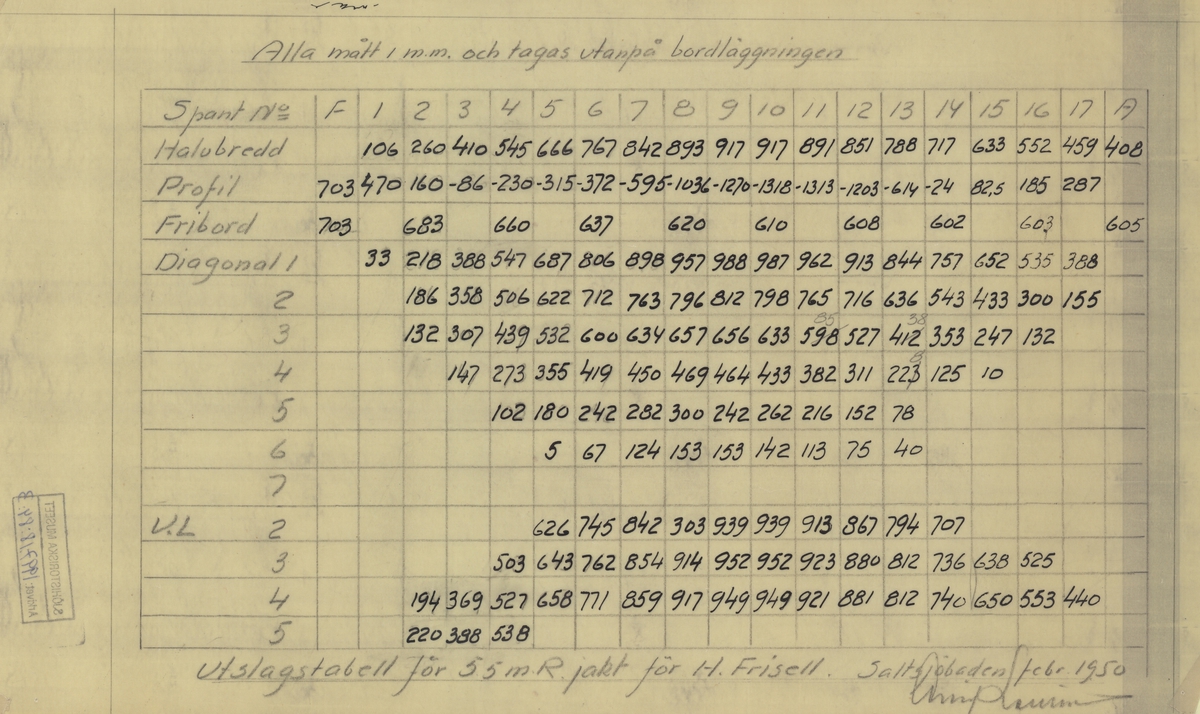 Alla mått i m.m. och tagas utanpå bordläggningen
Spant No F 1 2 3 4 5 6 7 8 9 10 11 12 13 14 15 16 17 A
Halvbredd 106 260 410 545 666 767 842 893 917 917 891 851 788 717 633 552 459 408
Profil 703 470 160 -86 -230 -315 -372 -595 -1036 -1270 -1318 -1313 -1203 -614 -24 82,5 185 287
Fribord 703 683 660 637 620 610 608 602 603 605
Diagonal 1 33 218 388 547 687 806 898 957 988 987 962 913 844 757 652 535 388
2 186 358 506 622 712 763 796 812 798 765 716 636 543 433 300 155
85 38
3 132 307 439 532 600 634 657 656 633 598 527 412 353 247 132
4 147 273 355 419 450 469 464 433 382 311 223 125 10
5 102 180 242 282 300 242 262 216 152 78
6 5 67 124 153 153 142 113 75 40
7
V.L 2 626 745 842 303 939 939 913 867 794 707
3 503 643 762 854 914 952 952 923 880 812 736 638 525
4 194 369 527 658 771 859 917 949 949 921 881 812 740 650 553 440
5 220 388 538
Utslagstabell för 5.5 m.R. jakt för H. Frisell. Saltsjöbaden febr. 1950
SJÖHISTORISKA MUSEET